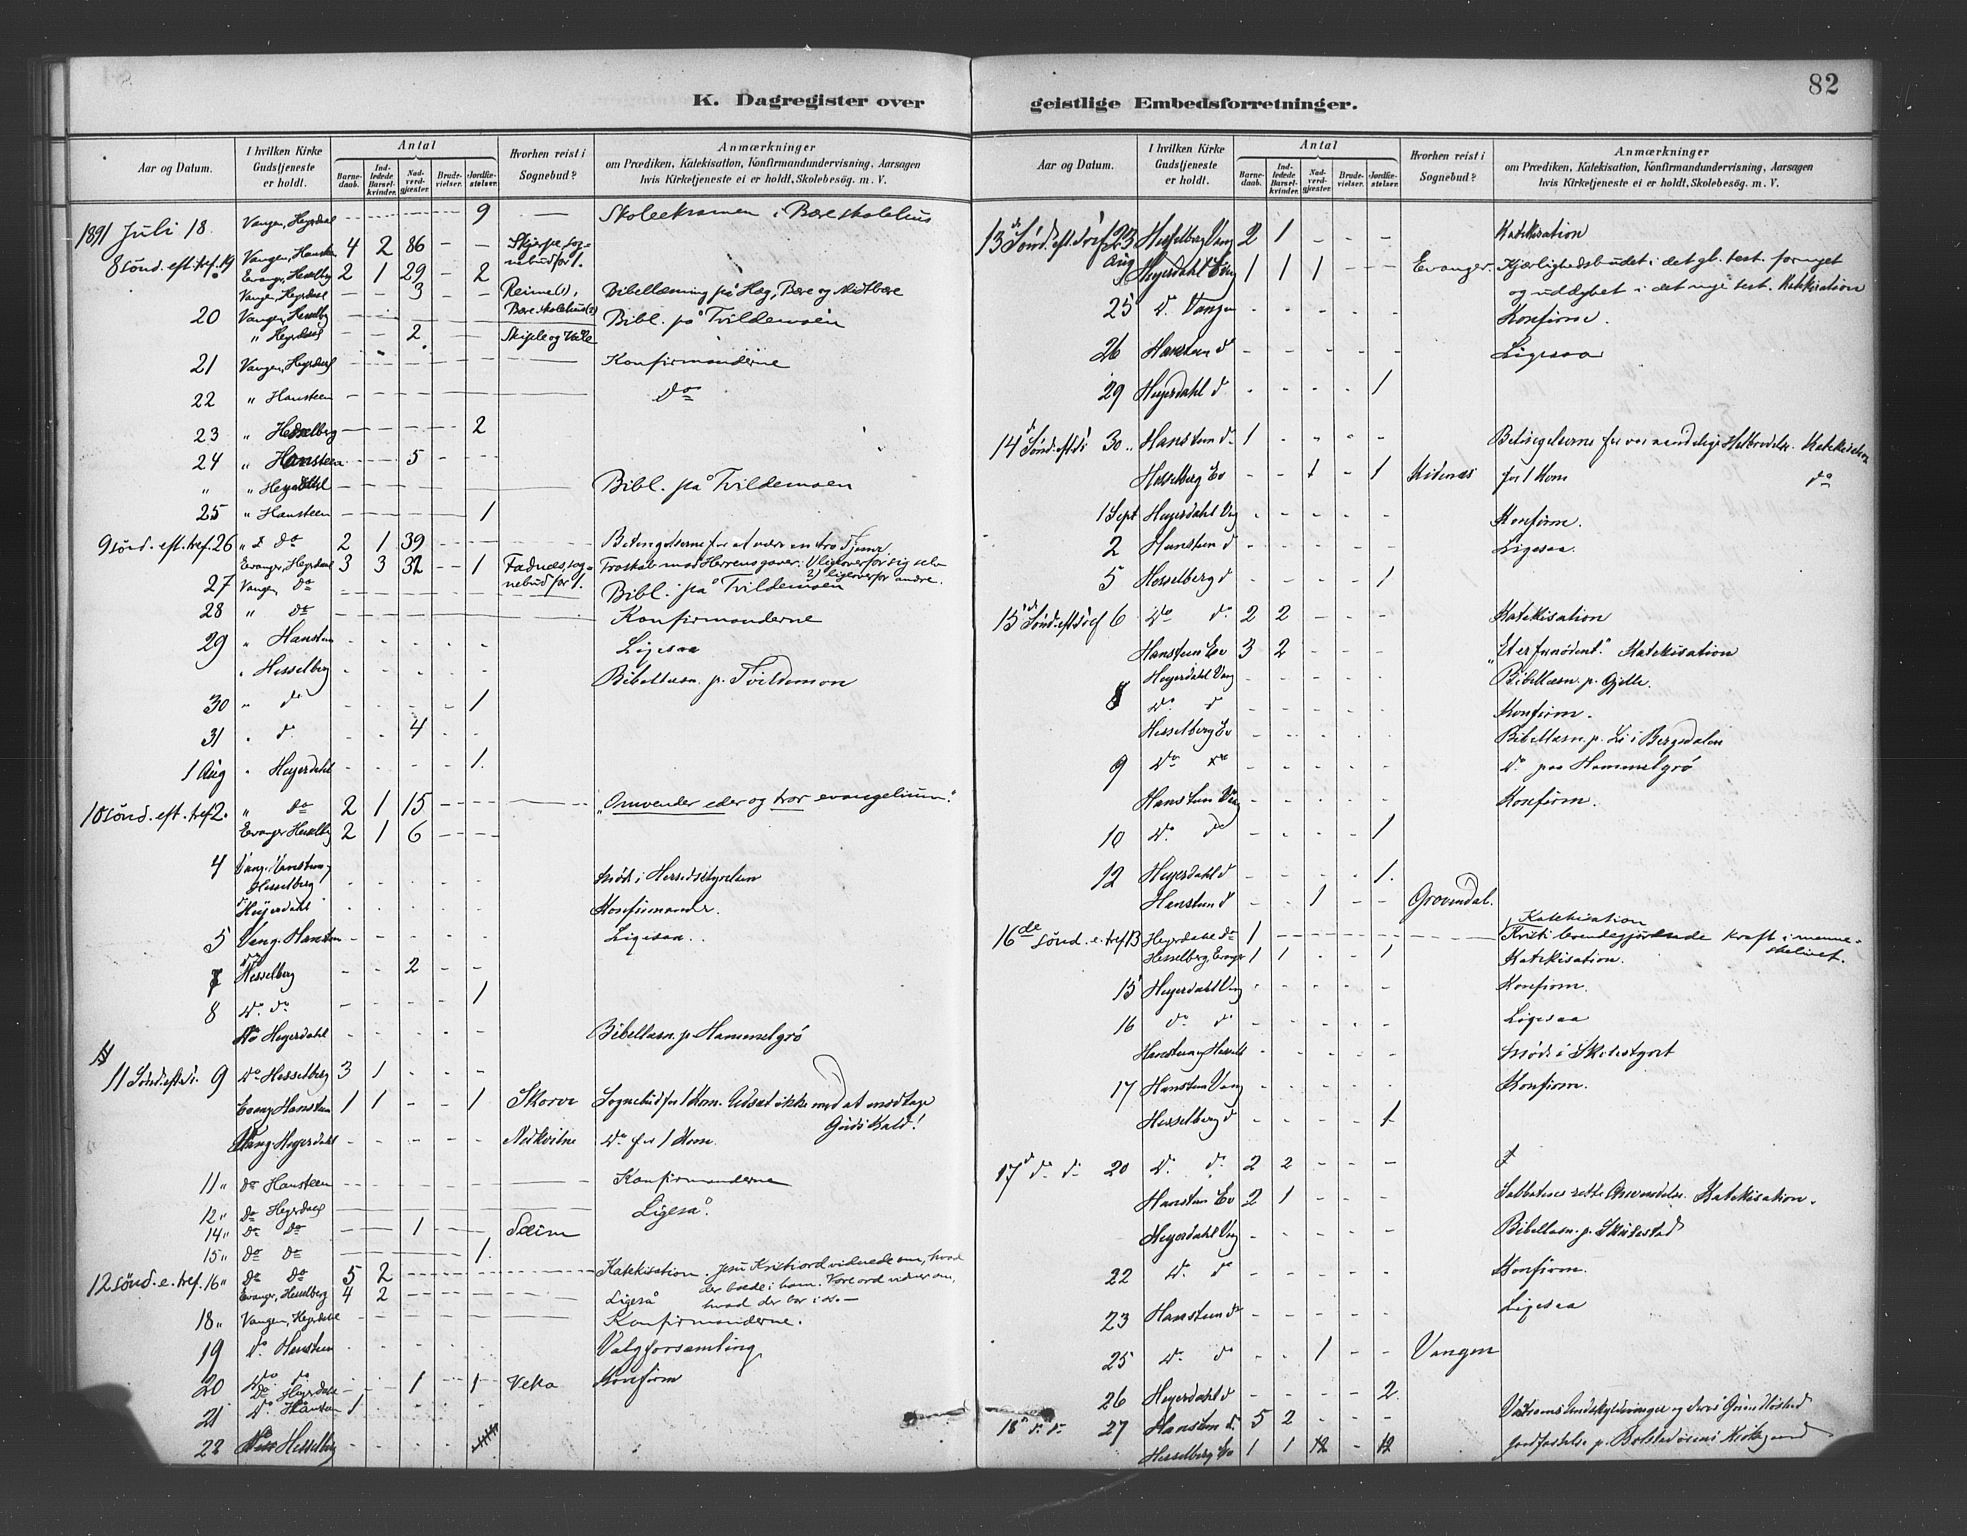 82
K. Dagregister over geistlige Embedsforretninger.
Aar og Datum. I hvilken Kirke Gudstjeneste er holdt. Antal Barnedaab. Indledede Barselkvinder. Nadverdgjæster. Brudevielser. Jordfæstelser. Hvorhen reist i Sognebud? Anmærkninger om Prædiken, Katekisation, Konfirmandundervisning, Aarsagen hvis Kirketjeneste ei er holdt, Skolebesøg. m. V.
1891 Juli 18. Vangen, Heyerdahl - - - - 9 — Skoleeksamen i Børe skolehus
8 sönd. eft. tref. 19 Vangen, Hansteen 4 2 86 - - Skjerpe, sognebud for 1.
Evanger, Hesselberg 2 1 29 - 2
Vangen, Heyerdahl - - 3 - - Reime(1), Børe skolehus(2) Bibellæsning på Hæg, Børe og Midtbøre
20 Vangen, Hesselbg - - - - - Bibl. på Tvildemoen
" Heyerdahl - - 2 - - Skiple og
21 Vangen, Heyerdahl - - - - - Konfirmanderne
22 " Hansteen - - - - - Do
23 " Hesselberg - - - - 2
24 " Hansteen - - 5 - -
" " Heyerdahl - - - - - Bibl. på Tvildemoen
25 " Hansteen - - - - 1
9 sönd. eft. tref. 26 " Do 2 1 39 - - Betingelserne for at være en tro Tjener.
Evanger, Heyerdahl 3 3 32 - 1 Fadnes, sognebud for 1. Troskab mod Herrens gaver: 1) ligeoverfor sig selv 2) ligeoverfor andre.
27 Vangen Do - - - - - Bibl. på Tvildemoen
28 " Do - - - - - Konfirmanderne
29 " Hansteen - - - - - Ligesaa
" Hesselberg - - - - - Bibellæsn. p. Tvildemoen
30 " do - - - - 1
31 " d. - - 4 - -
1 Aug " Heyerdahl - - - - 1.
10 sönd. eft. tref. 2. " Do 2 1 15 - - — „Omvender eder og tror evangelium."
Evanger Hesselbg 2 1 6 - -
4 Vang. Hansteen, Hesselberg - - - - - Möde i Herredsstyrelsen
Heyerdahl - - - - - Konfirmander.
5 Vang. Hansteen - - - - - Ligesaa.
7 Hesselberg - - 2 - -
8 Do Do - - - - 1
Do Heyerdahl - - - - - Bibellæsn. p. Hammelgrø
11 Sönd. eft. 9 Do Hesselberg 3 1 - - -
Evang Hansteen 1 1 - - 1 Skorve Sognebud for 1 Kom. Udsæt ikke med at modtage Guds Kald!
Vang. Heyerdahl - - - - - Nedkvitne Do for 1 Kom.
11 " Do Hansteen - - - - - Konfirmanderne
12 " Do Heyerdahl - - - - - Ligeså.
14 " Do Do - - 1 - - Seim
15 " Do Do - - - - 1.
12 sönd. e. tref. 16 " Do Do 5 2 - - - Katekisation. Jesu Kristi ord vidnede om, hvad der boede i ham. Vore ord vidner om, hvad der bor i os. —
Evanger, Hesselberg 4 2 - - - Ligeså
18 " Vangen, Heyerdahl - - - - - Konfirmanderne.
19 Do Hansteen - - - - - Valgforsamling
20 Do do - - 1 - 1 Veka Konfirm
Do Heyerdahl
21 Do Hansteen 1 - - - -
22 Hesselberg - - - -
Aar og Datum. I hvilken Kirke Gudstjeneste er holdt. Antal Barnedaab. Indledede Barselkvinder. Nadverdgjæster. Brudevielser. Jordfæstelser. Hvorhen reist i Sognebud? Anmærkninger om Prædiken, Katekisation, Konfirmandundervisning, Aarsagen hvis Kirketjeneste ei er holdt, Skolebesøg. m. V.
13 Sönd. eft. Tref 23 Aug Hesselberg Vang 2 1 - - - Katekisation
Heyerdahl Evang 1 1 1 - - Evanger. Kjærlighedsbudet i det gl. test. fornyet og uddybet i det nye test. Katekisation
25 Do Vangen - - - - - Konfirm.
26 Hansteen d - - - - - Ligesaa
29 Heyerdahl d - - - - 1
14 Sönd. eft. 30 Hansteen d. 1 - - - - Betingelserne for vor aandelige Helbredelse. Katekisation
Hesselberg Ev - - 1 - 1 for 1 Kom do
1 Sept Heyerdahl Vang - - - - - Konfirm.
2 Hansteen d - - - - - Ligesaa.
5 Hesselberg d - - - - 1
15 Sönd. eft. Tref 6 Do d. 2 2 - - - Katekisation
Hansteen Ev 3 2 - - - „Et er fornödent." Katekisation
Heyerdahl Vang - - - - - Bibellæsn. p. Gjelle.
8 Do d - - - - - Konfirm.
Hesselberg Ev - - - - - Bibellæsn. p. Li i Bergsdalen
9 Do - - - - - Do paa Hammelgrø
Hansteen Vang - - - - - Konfirm.
10 Do do - - - - 1
12 Heyerdahl d - - - - 1.
Hansteen d - - 1 - - Grovendal.
16de sönd. e. tref 13 Heyerdahl Do 1 - - - - Katekisation Kristi levendegjörende kraft i menneskelivet.
Hesselberg, Evanger 1 1 - - 1 Katekisation.
15 Heyerdahl Vang - - - - - Konfirm.
16 do d - - - - - Ligesaa
Hansteen og Hesselb - - - - - Möde i
17 Hansteen Vang - - - - - Konfirm.
Hesselberg d - - - - 1
17 do d. 20 Do d. 2 2 - - -
Hansteen Ev 2 1 - - - Sabbatens rette Anvendelse. Katekisation.
Heyerdahl Vang - - - - - Bibellæsn. p. Skutestad
22 Do d - - - - - Konfirm.
23 Hansteen do - - - - - Ligesaa
25 Do d - - 1 - - Vangen
26 Heyerdahl d - - - - 2.
18 d. d. 27 Hansteen d. 5 2 - - - Undskyldninger og deres Grundlöshed
Hesselberg Ev 1 1 12 - 12 Jordfæstelse p. Bolstadörens Kirkegaard